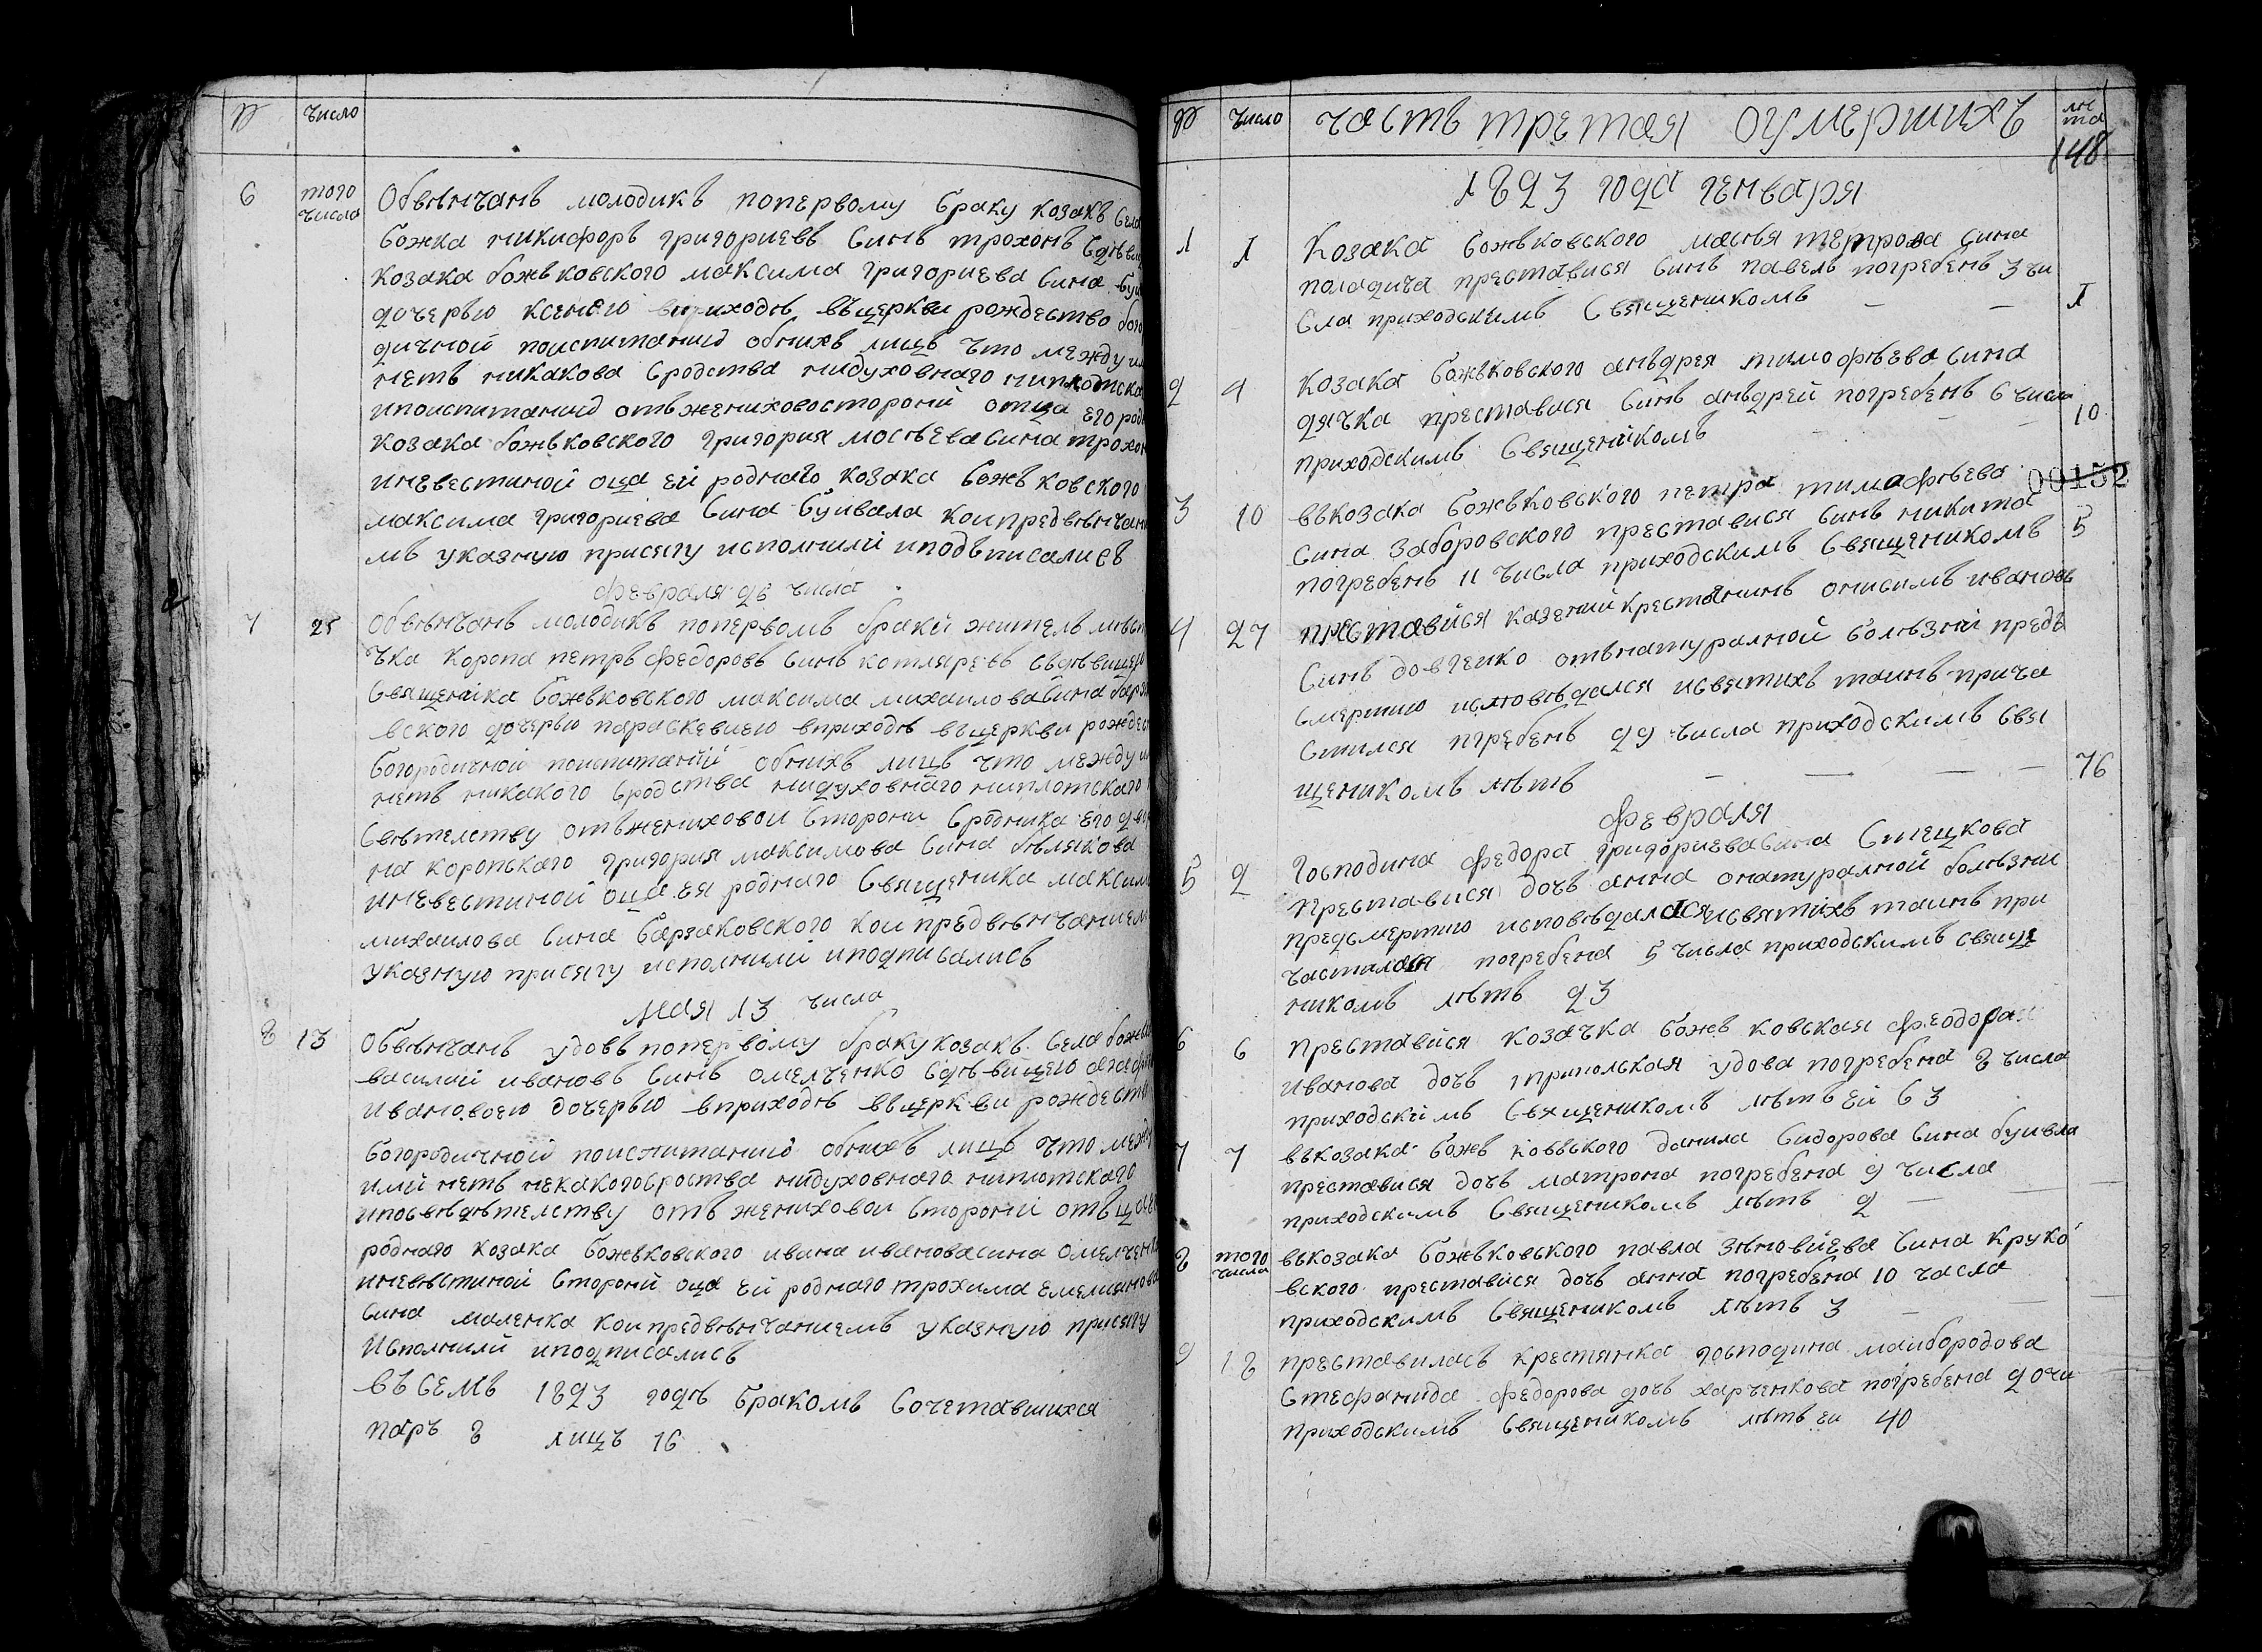 № число
6 того числа Обвѣнчанъ молодикъ поперв­ому браку козакъ села
божка никифоръ григориевъ синъ трохонъ
козака божъковского максима григориева сина
дочерью ксениею вприходѣ въцеркви рождество
дичной поиспитании обоихъ лицъ что между
нетъ никакова сродства нидуховнаго ниплотска
ипоиспитании отъжениховосторони отца его
козака божъковского григория мосѣева сина
иневестиной оца ей роднаго козака божъковского
максима григориева сина буивала коипредвѣнчани
мъ указную присягу исполнили иподъписалисъ
февраля 25 числа
7 25 Обвѣнчанъ молодикъ попервомъ браки жителъ
чка коропа петръ федоровъ синъ котляревъ
священика божъковского максима михаилова сина
вского дочерью параскевиею вприходѣ вьцеркви
богородичной поиспитаний обоихъ лицъ что между
нетъ никакого сродства нидуховнаго ниплотскаго
свѣтелству отъжениховои сторони сродника его
на коропскаго григория максимова сина бѣлякова
иневестиной оца ея роднаго священика максим
михаилова сина барзаковского кои предвѣнчанием
указную присягу исполнили иподписалисъ
мая 13 числа
8 13 Обвѣнчанъ удовъ попервому браку козакъ села
василий ивановъ синъ омелченко
ивановою дочерью вприходѣ вьцеркви рождеств
богородичной поиспитании обоихъ лицъ что
ими нетъ некакогосроства нидуховнаго ниплотскаго
ипосвѣдѣтелству отъ жениховои сторони
роднаго козака божъковского ивана ивановасина
иневѣстиной сторони оца ей роднаго трохима
сина маленка коипредвѣнчаниемъ указную присягу
исполнили иподписалисъ
въ семъ 1823 годѣ бракомъ сочетавшихся
паръ 8 лицъ 16
№ число частъ третая Оумерших лѣта
148
1823 года генваря
1 1 Козака божъковского мосѣя петрова сина
паладича преставися синъ павелъ погребенъ 3 чи
сла приходскимъ священикомъ — — 1
2 4 козака божъковского анъдрея тимофѣева сина
дячка преставися синъ анъдрей погребенъ 6 числа
приходскимъ священикомъ — — 10
00152
3 10 вькозака божъковского петра тимафѣева
сина заборовского преставися синъ никита
погребенъ 11 числа приходскимъ священикомъ 5
4 27 преставися казений крестянинъ онисимъ ивановъ
синъ довгенко отънатуралной болѣзни предъ
смертию исповѣдался исвятихъ таинъ прича
стился пгребенъ 29 числа приходскимъ свя
щеникомъ лѣтъ — — — — 76
февраля
5 2 господина федора григориева сина
преставися дочъ анна онатуралной болѣзни
предсмертию исповѣдаласяисвятихъ таинъ при
частилася погребена 5 числа приходскимъ свяще
никомъ лѣтъ 23
6 6 преставися козачка божъ ковская феодора
иванова дочъ трипольская удова погребена 8 числа
приходскимъ священикомъ лѣтъ ей 63
7 7 вькозака божъ ковьского данила сидорова сина буивла
преставися дочъ матрона погребена 9 числа
приходскимъ священикомъ лѣтъ 2 —
8 того числа вькозака божъковского павла зѣновиева сина круко
вского преставися дочъ анна погребена 10 числа
приходскимъ священикомъ лѣтъ 3 —
9 18 преставиласъ крестянка господина маибородова
стефанида федорова дочъ харченкова погребена 20чи
приходскимъ священикомъ лѣтъ еи 40